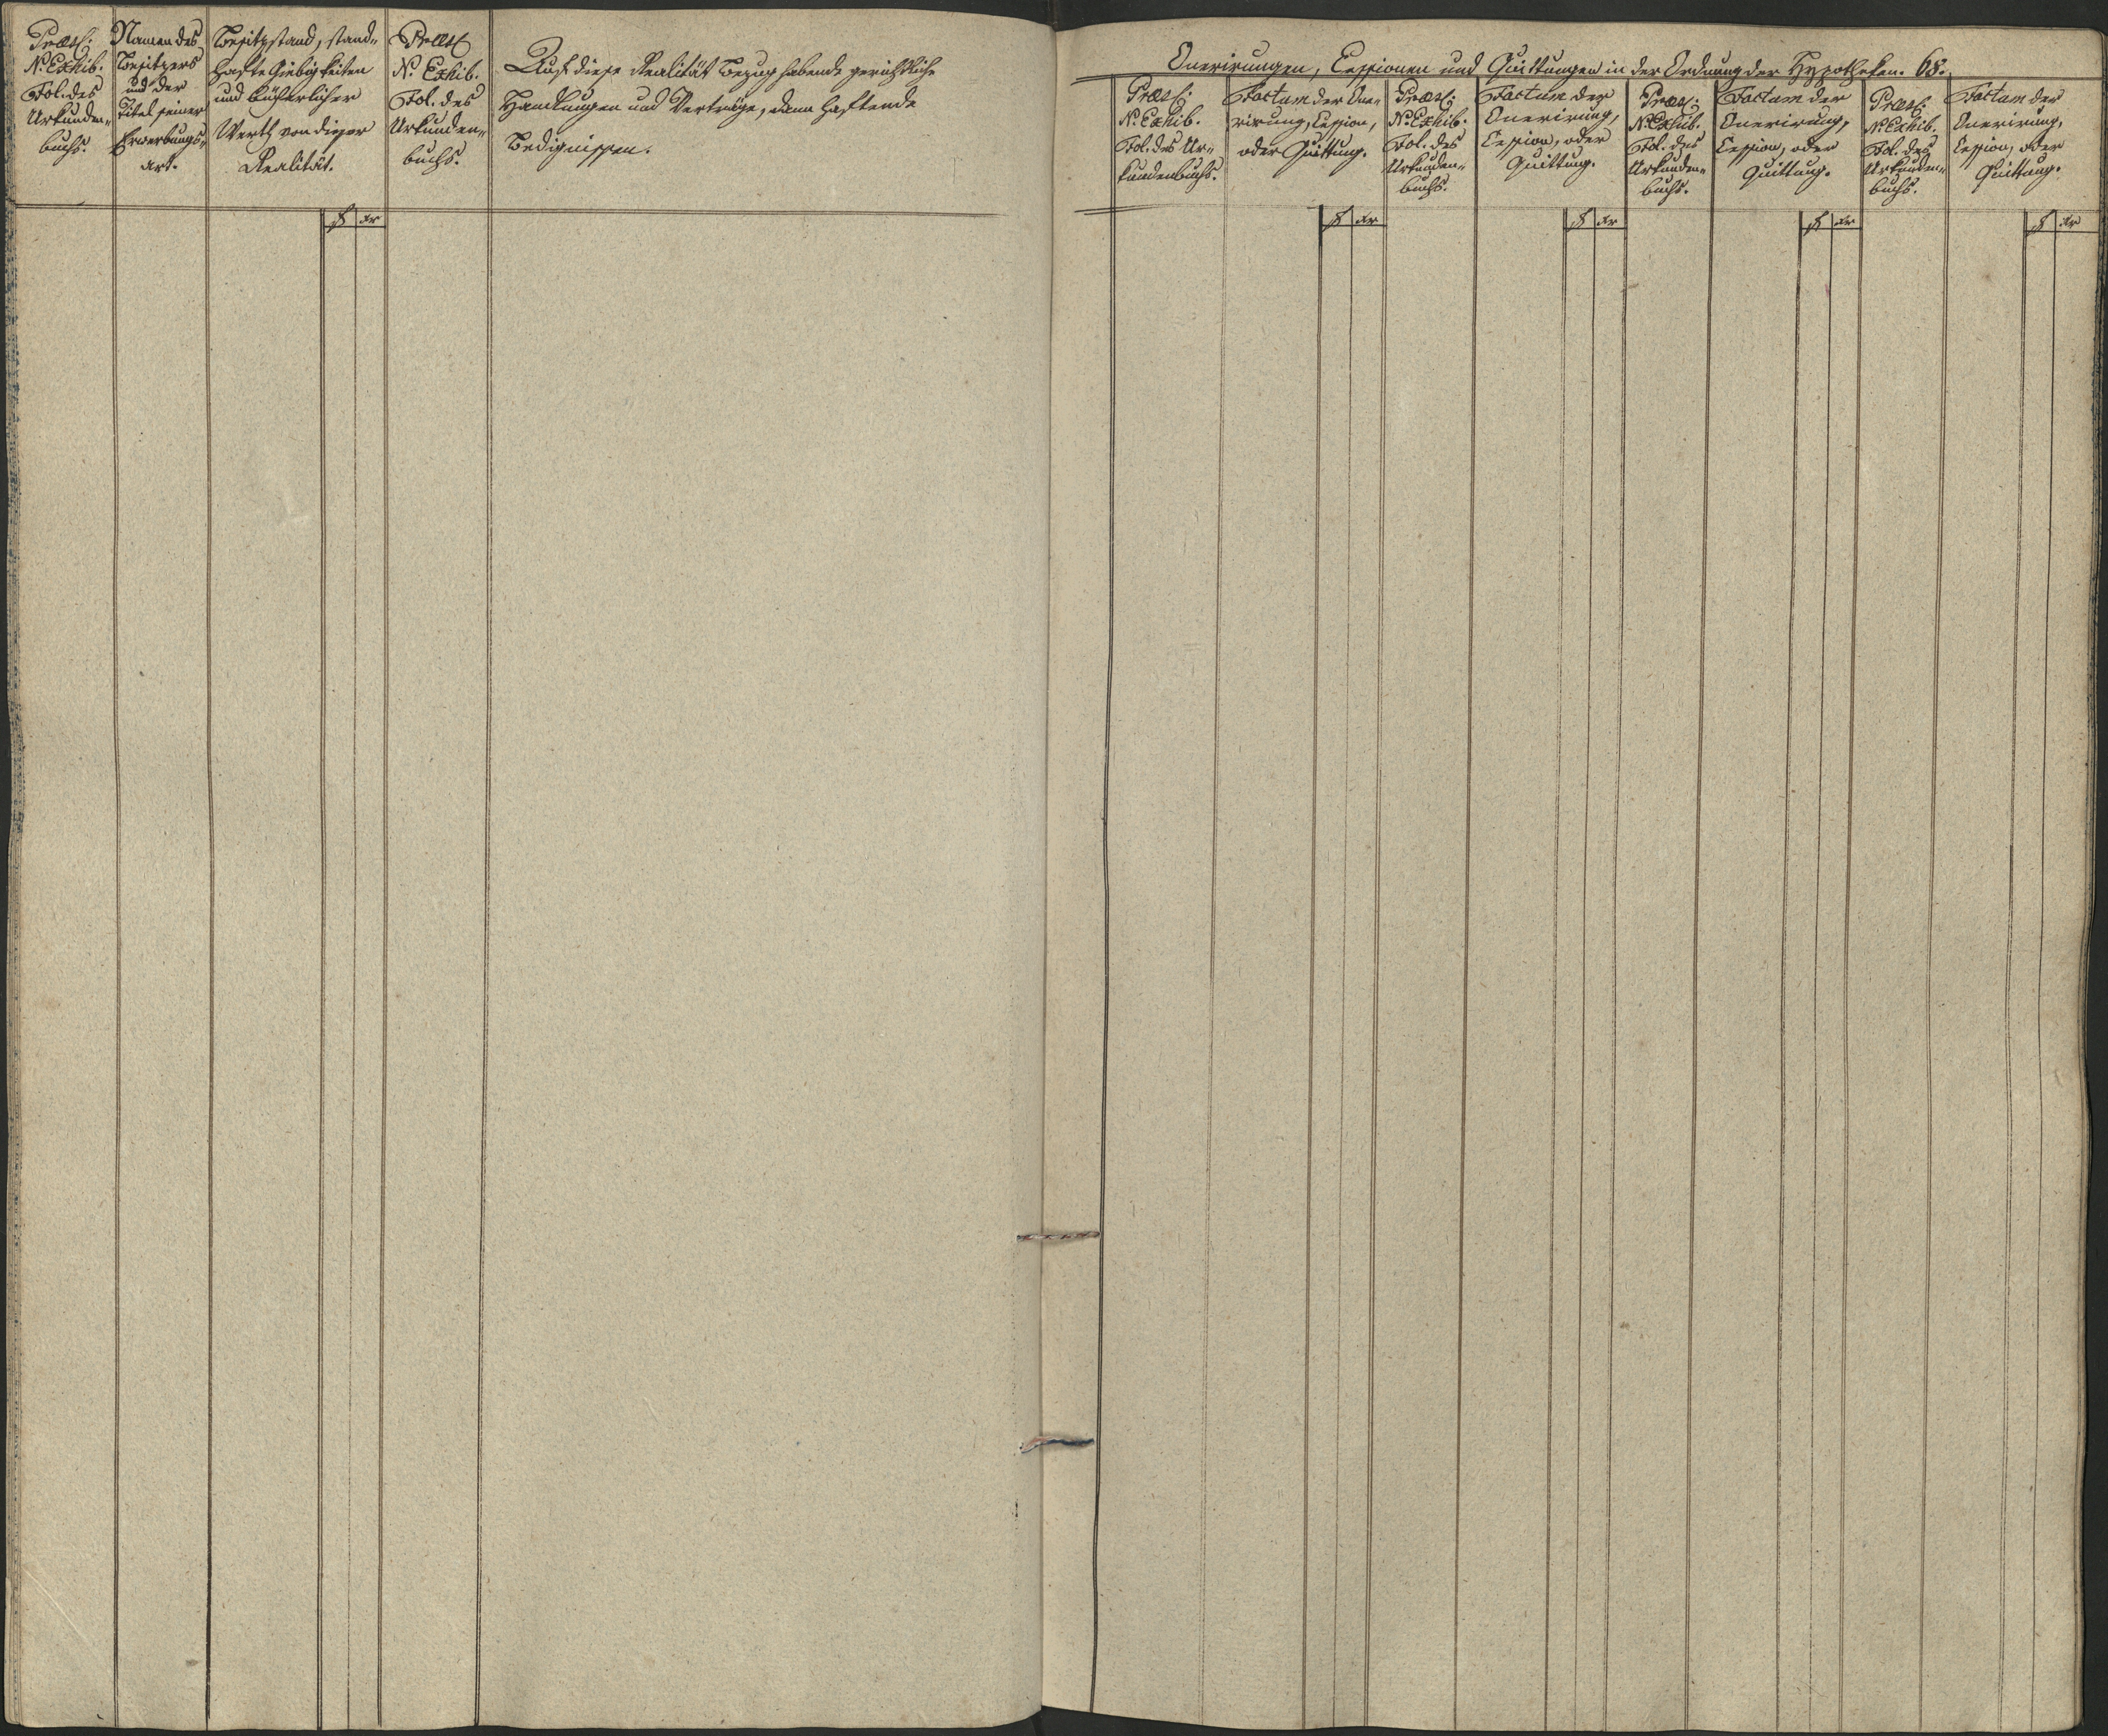 Præs:
N: Exhib.
Fol. des
Urkunden-
buchs.
Namen des
Besitzers
und der
Titel seiner
Erwerbungs-
art.
Besitzstand, stand-
hafte Giebigkeiten
und bücherlicher
Werth von dieser
Realität.
f xr
Præs:
N: Exhib.
Fol. des
Urkunden-
buchs.
Auf diese Realität Bezug habende gerichtliche
Handlungen und Verträge, dann haftende
Bedignissen.
Onerirungen, Cessionen und Quittungen in der Ordnung der Hypotheken. 68.
Præs:
N: Exhib.
Fol. des Ur-
kundenbuchs.
Factum der One-
rirung, Cession,
oder Quittung.
f xr
Præs:
N: Exhib.
Fol. des
Urkunden-
buchs.
Factum der
Onerirung,
Cession, oder
Quittung.
f xr
Præs:
N: Exhib.
Fol. des
Urkunden-
buchs.
Factum der
Onerirung,
Cession, oder
Quittung.
f xr
Præs:
N: Exhib.
Fol. des
Urkunden-
buchs.
Factum der
Onerirung,
Cession, oder
Quittung.
f xr